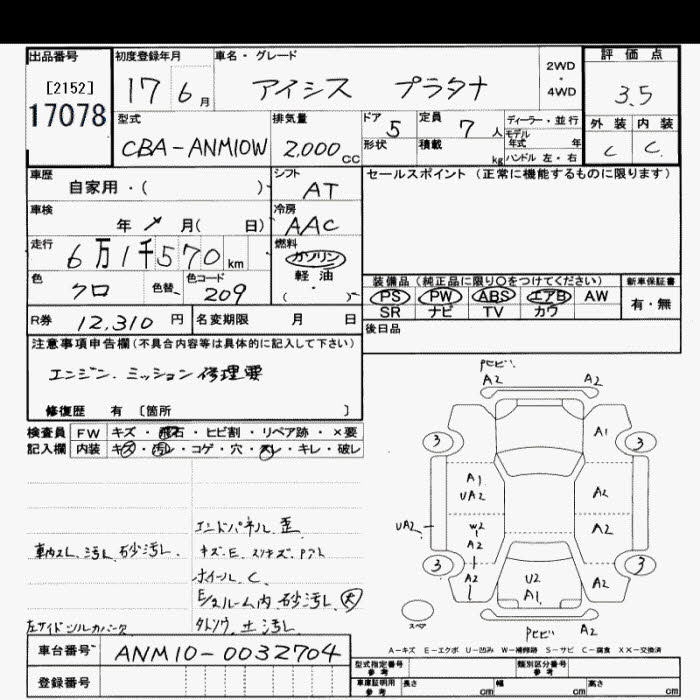 出品番号
[2152]
17078
初度登録年月
17 6月
車名・グレード
アイシス プラタナ
2WD
・
4WD
評価点
3.5
型式
CBA-ANM10W
排気量
2,000cc
ドア
5
形状
定員
7人
積載
kg
ディーラー・並行
モデル
年式 年
ハンドル 左・右
外装 内装
C C
車歴
自家用・( )
シフト
AT
セールスポイント (正常に機能するものに限ります)
車検
年 月( 日)
冷房
AAC
走行
6万1千570km
燃料
ガソリン
軽油
( )
色
クロ
色替
色コード
209
装備品 (純正品に限り○をつけてください)
PS PW ABS エアB AW
SR ナビ TV カワ
新車保証書
有・無
R券 12,310円
名変期限 月 日
後日品
注意事項申告欄(不具合内容等は具体的に記入して下さい)
エンジン.ミッション修理要
修復歴 有 〔箇所 〕
検査員 FW キズ・飛石・ヒビ割・リペア跡・×要
記入欄 内装 キズ・汚レ・コゲ・穴・スレ・キレ・破レ
エンドパネル歪
車内スレ.汚レ.砂汚レ.
ホイールC.
E/ルーム内砂汚レ.大
車台番号 ANM10-0032704
登録番号
Pヒビ
A2 A2
3 A1 3
A1
UA2 A2
UA2 W2 A2
A2
3 A2 U2 A2 3
A1
スペア
Pヒビ A2
A-キズ E-エクボ U-凹み W-補修跡 S-サビ C-腐食 XX-交換済
型式指定番号
参考
類別区分番号
参考
車庫証明用
参考
長さ cm 幅 cm 高さ cm